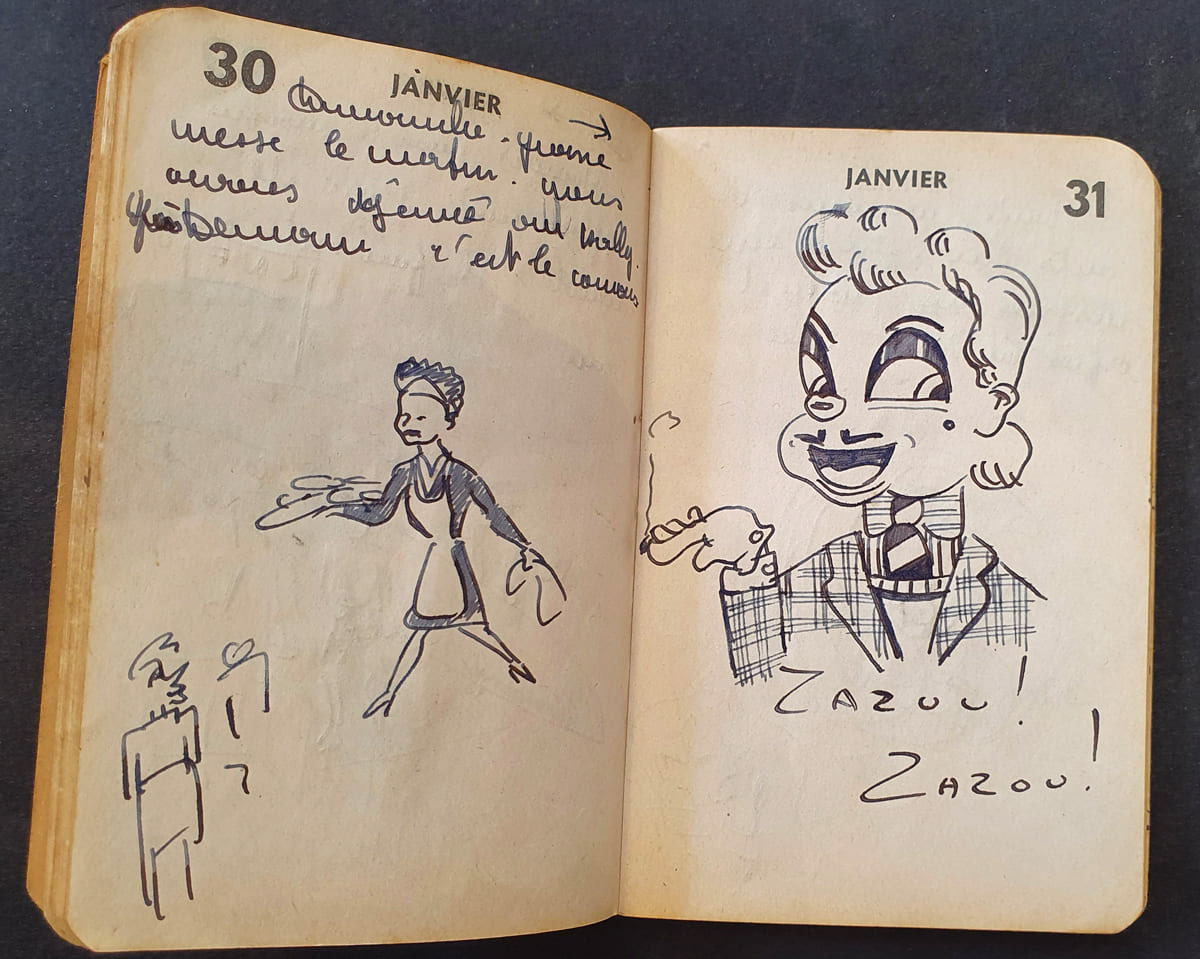 30 JANVIER
Dimanche. grand →
messe le matin. nous
avons déjeuné au
Demain c'est le concours
JANVIER 31
ZAZOU!
ZAZOU!